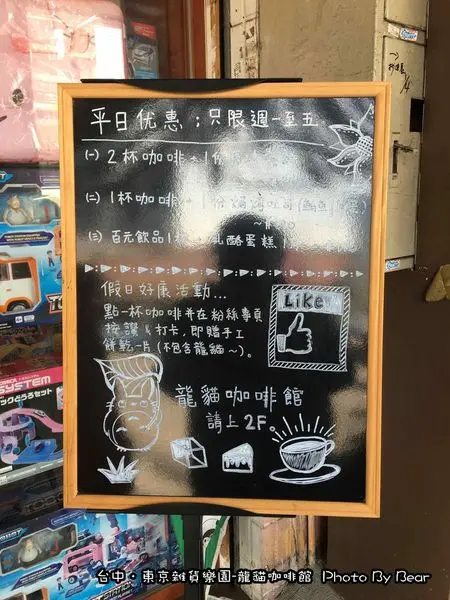 平日优惠；只限週一至五
(一) 2杯咖啡+1
(二) 1杯咖啡+1份 吐司(鮪魚
(三) 百元飲品1杯 乳酪蛋糕1
假日好康活動...
點一杯咖啡並在粉絲專頁
按讚&打卡，即贈手工
餅乾一片(不包含龍貓~)。
LiKe
龍貓咖啡館
請上2F。
SYSTEM
台中·東京雜貨樂園-龍貓咖啡館 Photo By Bear